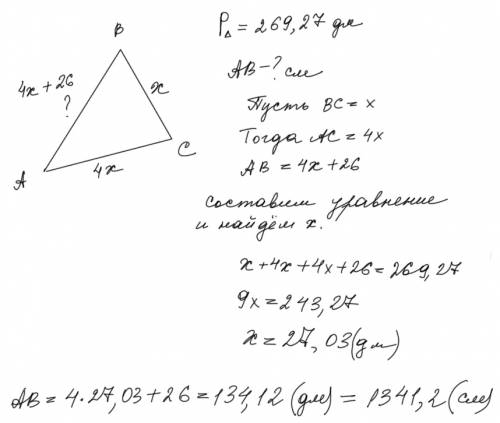 B
P△ = 269,27 дм
AB - ? см
4x + 26
?
x
Пусть BC = x
Тогда AC = 4x
AB = 4x + 26
A
4x
C
составим уравнение
и найдём x.
x + 4x + 4x + 26 = 269,27
9x = 243,27
x = 27,03 (дм)
AB = 4 · 27,03 + 26 = 134,12 (дм) = 1341,2 (см)